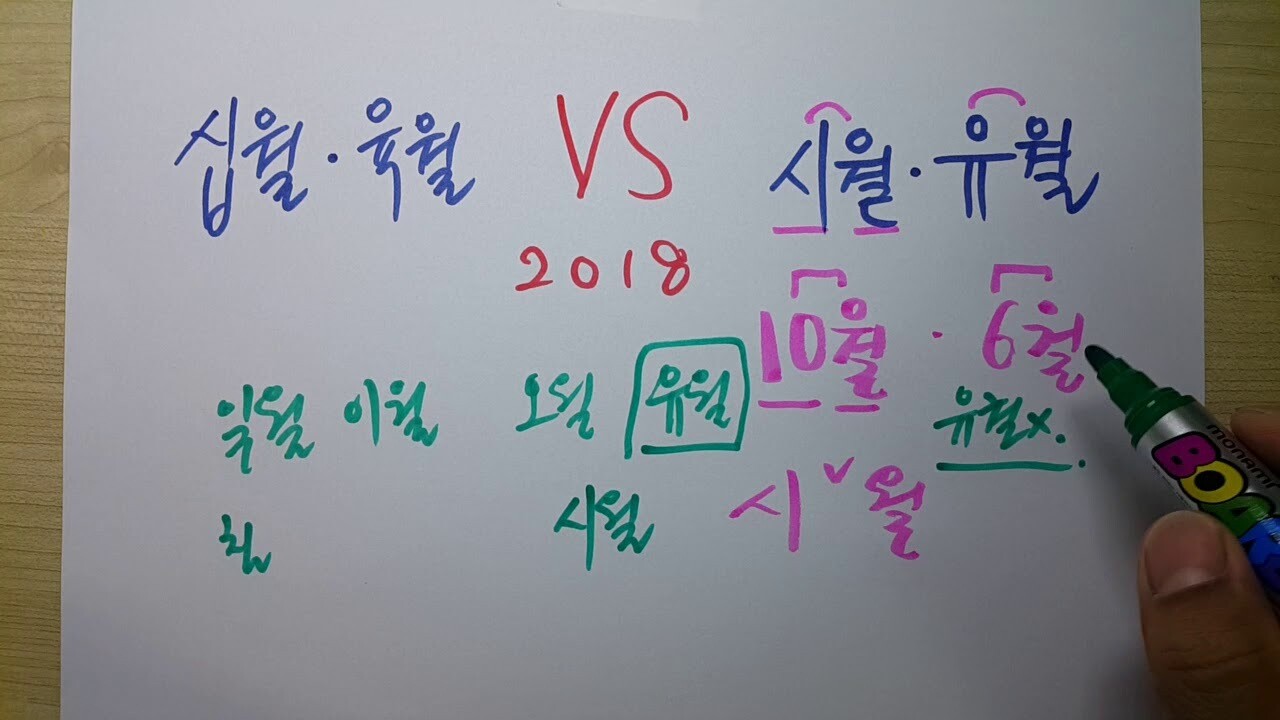 십월·육월 VS 시월·유월
2018
10월·6월
일월 이월 오월 유월
유월x.
시월 시v월
칠
monami
BOA